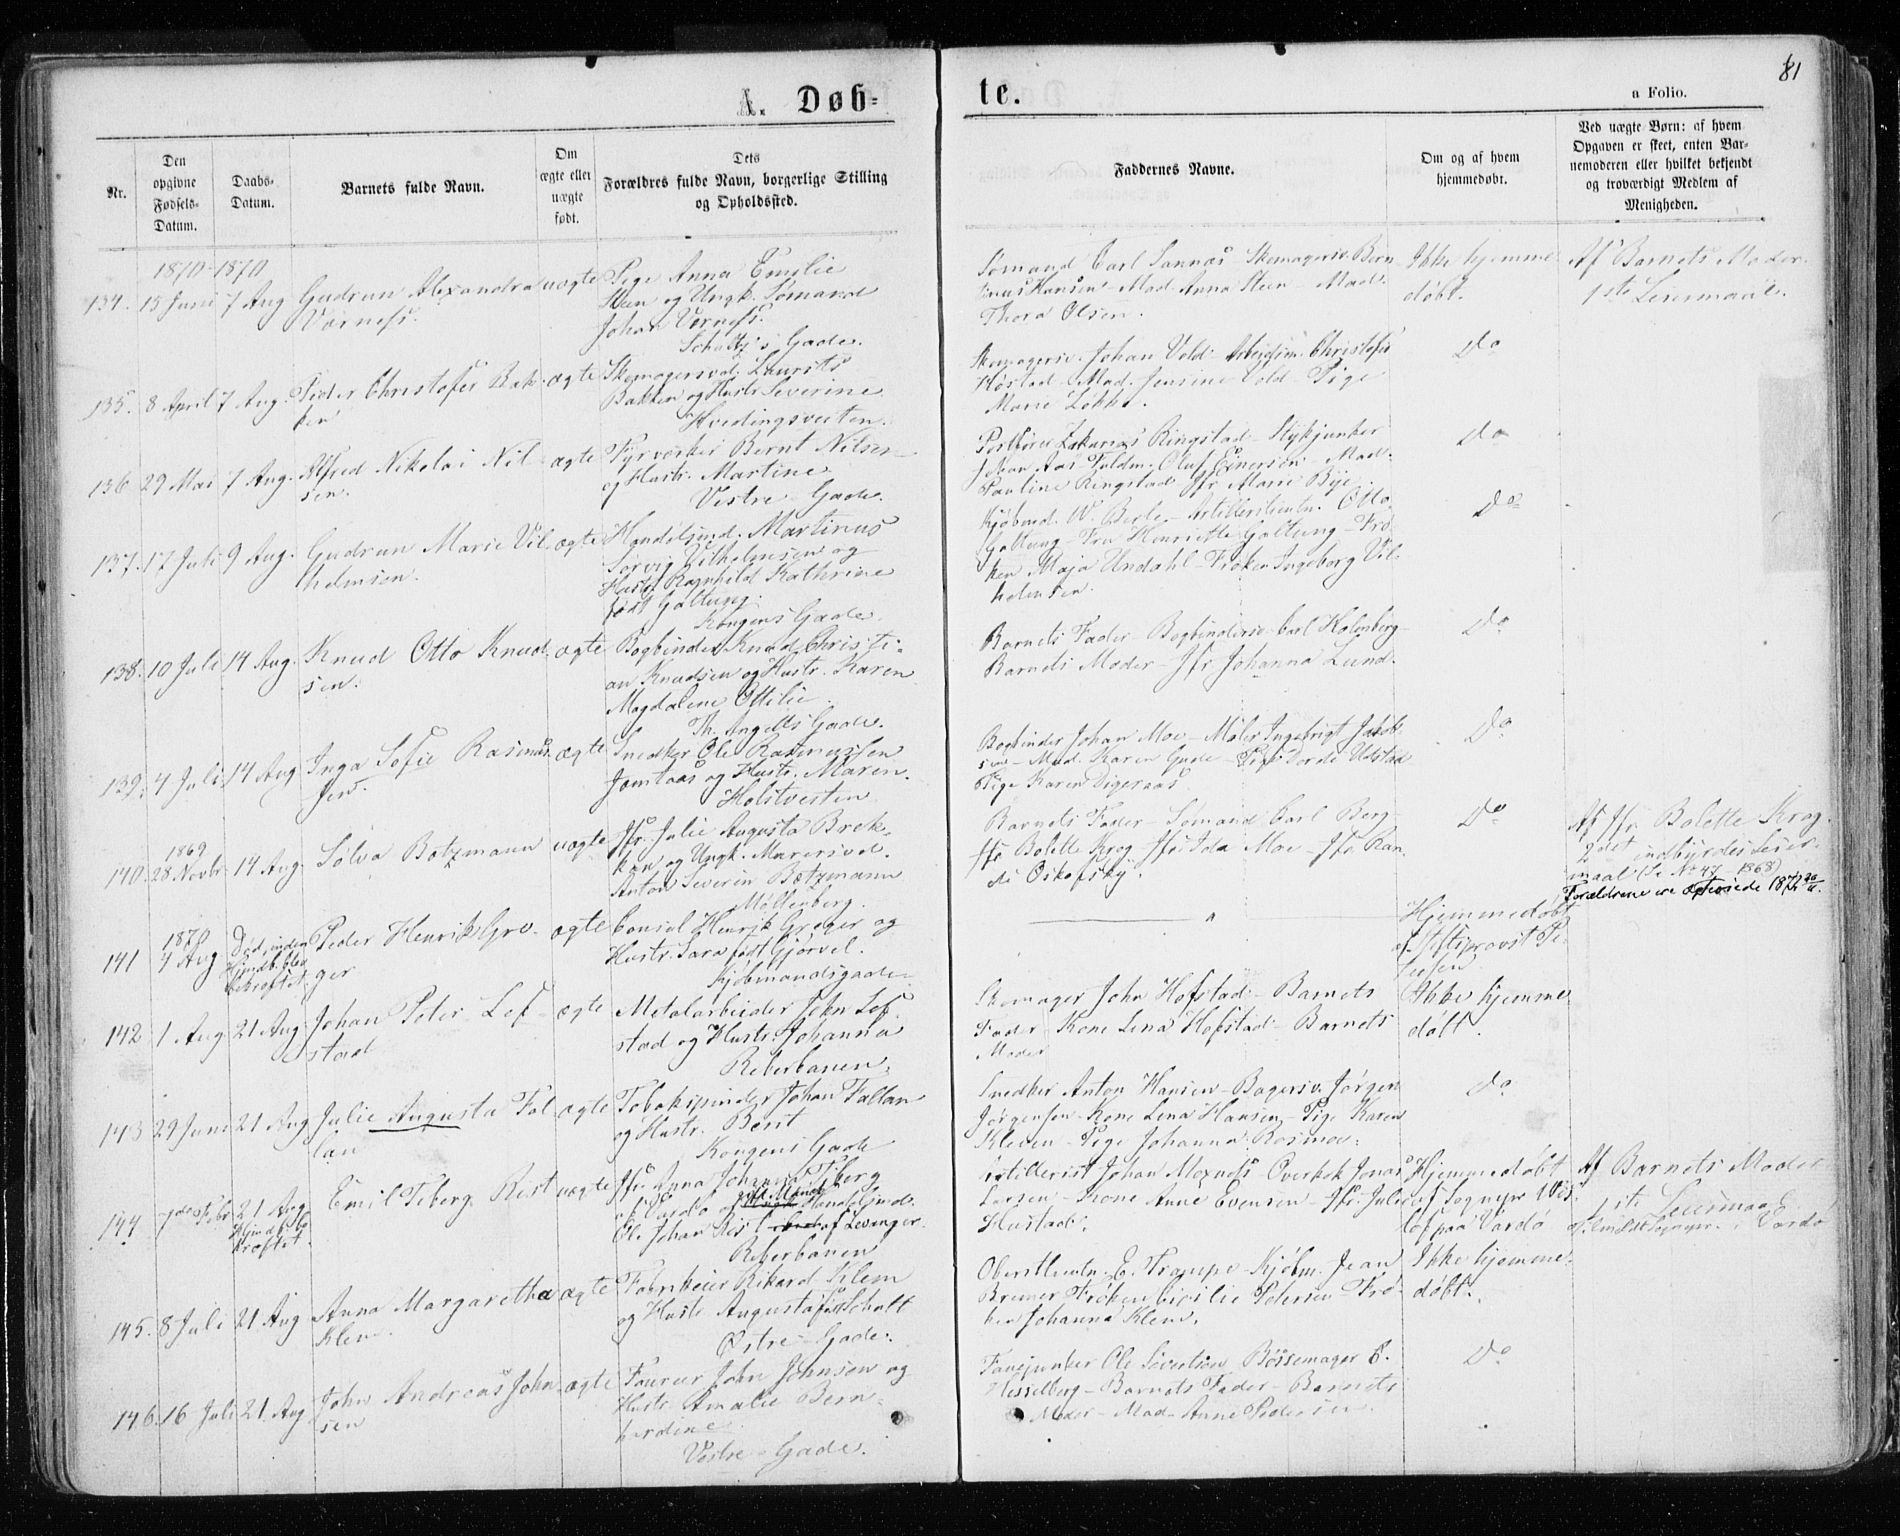 81
A. Døb-
te.
a Folio.
Nr.
Den
opgivne
Fødsels-
Datum.
Daabs-
Datum.
Barnets fulde Navn.
Om
ægte eller
uægte
født.
Dets
Forældres fulde Navn, borgerlige Stilling
og Opholdssted.
Faddernes Navne.
Om og af hvem
hjemmedøbt.
Ved uægte Børn: af hvem
Opgaven er skeet, enten Bar-
nemoderen eller hvilket bekjendt
og troværdigt Medlem af
Menigheden.
1870 1870
134. 15 Juni 7 Aug Gudrun Alexandra uægte
Værness.
Pige Anna Emilie
Steen og Ungk. Sømand
Johan Værness.
Schultz's Gade.
Sømand Carl Sannæs - Skomagersv. Bern-
Hansen - Mad. Anna Steen - Mad.
Thora Olsen.
Ikke hjemme
døbt.
Af Barnets Moder.
1ste Leiermaal.
135. 8 April 7 Aug. Peder Christofer Bak- ægte
ken
Skomagersvd. Laurits
Bakken og Hustr Severine
Hvedingsveiten.
Skomagersv. Johan Vold - Arbeidsm. Christofer
Høstad - Mad. Jensine Vold - Pige
Marie Løkke.
Do
136 29 Mai 7 Aug. Alfred Nikolai Nil- ægte
sen.
Fyrverker Bernt Nilsen
og Hustr. Martine
Vestre Gade.
Postfører Zakarias Ringstad - Stykjunker
Johan Aas - Fuldm. Oluf Einersen - Mad.
Pauline Ringstad - Jfr Marie Bye.
Do
137. 17 Juli 9 Aug. Gudrun Marie Vil- ægte
helmsen.
Handelsmd. Martinus
Sørvig Vilhelmsen og
Hustr Ragnhild Kathrine
født Galtung.
Kongens Gade.
Kjøbmd. W. Berle - Artillerilieutn. Otto
Galtung - Fru Henriette Galtung - Frø-
ken Maja Undahl - Frøken Ingeborg Vil-
helmsen.
Do
138. 10 Juli 14 Aug. Knud Otto Knud- ægte
sen.
Bogbinder Knud Christi-
an Knudsen og Hustr. Karen
Magdalene Ottilie
Th. Angells Gade.
Barnets Fader - Bogbindersv. Carl Holmberg -
Barnets Moder - Jfr. Johanna Lund.
Do
139. 4 Juli 14 Aug Inga Sofie Rasmus- ægte
sen.
Snedker Ole Rasmussen
Jamtaas og Hustr. Maren.
Holstveiten
Bogbinder Johan Moe - Maler Ingebrigt Jakob-
sen - Mad. Karen Gjede - Pige Dorde Udstad
Pige Karen Digeraas.
Do
1869
140. 28 Novbr 14 Aug. Solva Botzmann uægte
Jfr. Julie Augusta Brek-
kan og Ungk. Murersvd.
Anton Severin Botzmann
Møllenberg.
Barnets Fader - Sømand Carl Berg -
Jfr Bolette Krog - Jfr. Ida Moe - Jfr Ran-
di Oskofsky.
Do
Af Jfr. Bolette Krog.
2det indbyrdes Leier-
maal (Se No 47 1868)
Forældrene ere ægteviede 1872
1870
141 4 Aug Død, inden
Hjmdb. blev
bekræftet.
Peder Henrik Gre- ægte
ger
Consul Henrik Greger og
Hustr. Sara født Gjørvel.
Kjøbmandsgade
Hjemmedøbt
af Stiftsprovst Pe-
tersen
142 1 Aug 21 Aug Johan Peter Lef- ægte
stad
Metalarbeider John Lef-
stad og Hustr. Johanna
Reberbanen.
Skomager John Hofstad - Barnets
Fader - Kone Lina Hofstad - Barnets
Moder
Ikke hjemme
døbt.
143 29 Juni 21 Aug Julie Augusta Fal- ægte
lan
Tobakspinder Johan Fallan
og Hustr. Berit
Kongens Gade
Snedker Anton Hansen - Bagersv. Jørgen
Jørgensen - Kone Lina Hansen - Pige Karen
Kleven - Pige Johanna Rosmoe.
Do
144 7de Febr. 21 Aug
Hjmdøb. be-
kræftet.
Emil Tiberg Rist uægte
Jfr. Anna Johanna Tiberg
af Vardø og gift Mand Handelsmd.
Ole Johan Rist af Levanger.
Reberbanen
Artillerist Johan Moxnes - Overkok Jonas
Larsen - Kone Anne Evensen - Jfr. Julie
Hustad.
Hjemmedøbt
af Sognepr Wis-
løf paa Vardø
Af Barnets Moder
1ste Leiermaal
Vardø
145. 8 Juli 21 Aug Anna Margaretha ægte
Klem
Fanejunker Rikard Klem
og Hustr Augusta født Schult
Østre Gade.
Oberstlieutn. E. Trampe - Kjøbm. Jean
Bremer - Frøken Cicilie Petersen - Frø-
ken Johanna Klem.
Ikke hjemme-
døbt.
146. 16 Juli 21 Aug John Andreas John- ægte
sen
Fourer John Johnsen og
Hustr Amalie Bern-
hardine
Vestre Gade.
Fanejunker Ole Sivertsen - Bøssemager E.
Hesselberg - Barnets Fader - Barnets
Moder - Mad. Anne Pedersen.
Do